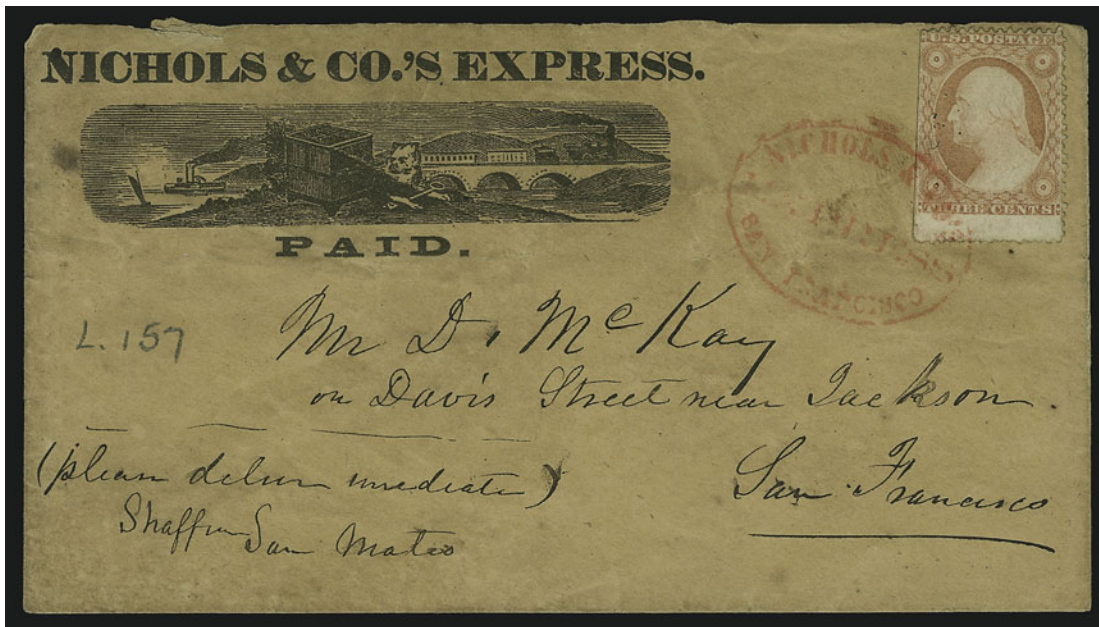 NICHOLS & CO.'S EXPRESS.
PAID.
U.S. POSTAGE
THREE CENTS
NICHOLS
L.157
Mr D. McKay
on Davis Street near Jackson
San Francisco
(please deliver imediate)
San Mateo